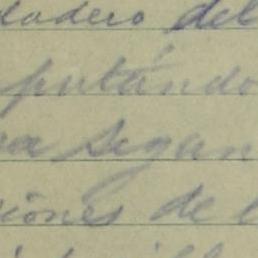 dadero del
putándo
sa segun
ciones de l